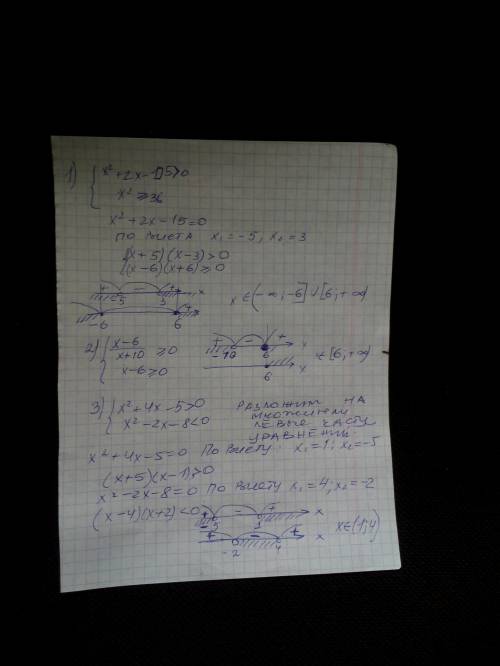 1) { x² + 2x - 15 > 0
x² ≥ 36
x² + 2x - 15 = 0
по Виета x₁ = -5, x₂ = 3
{ (x + 5)(x - 3) > 0
(x - 6)(x + 6) ≥ 0
+ -5 - 3 + x
-6 6 + x ∈ (-∞; -6] ∪ [6; +∞)
2) { x-6 / x+10 ≥ 0 + -10 - 6 + x
x - 6 ≥ 0 6 x ∈ [6; +∞)
3) { x² + 4x - 5 > 0 разложим на
x² - 2x - 8 < 0 множители
левые части
уравнений
x² + 4x - 5 = 0 По Виету: x₁ = 1; x₂ = -5
(x + 5)(x - 1) > 0
x² - 2x - 8 = 0 По Виету x₁ = 4, x₂ = -2
(x - 4)(x + 2) < 0
+ -5 - 1 + x
+ -2 - 4 + x x ∈ (1; 4)